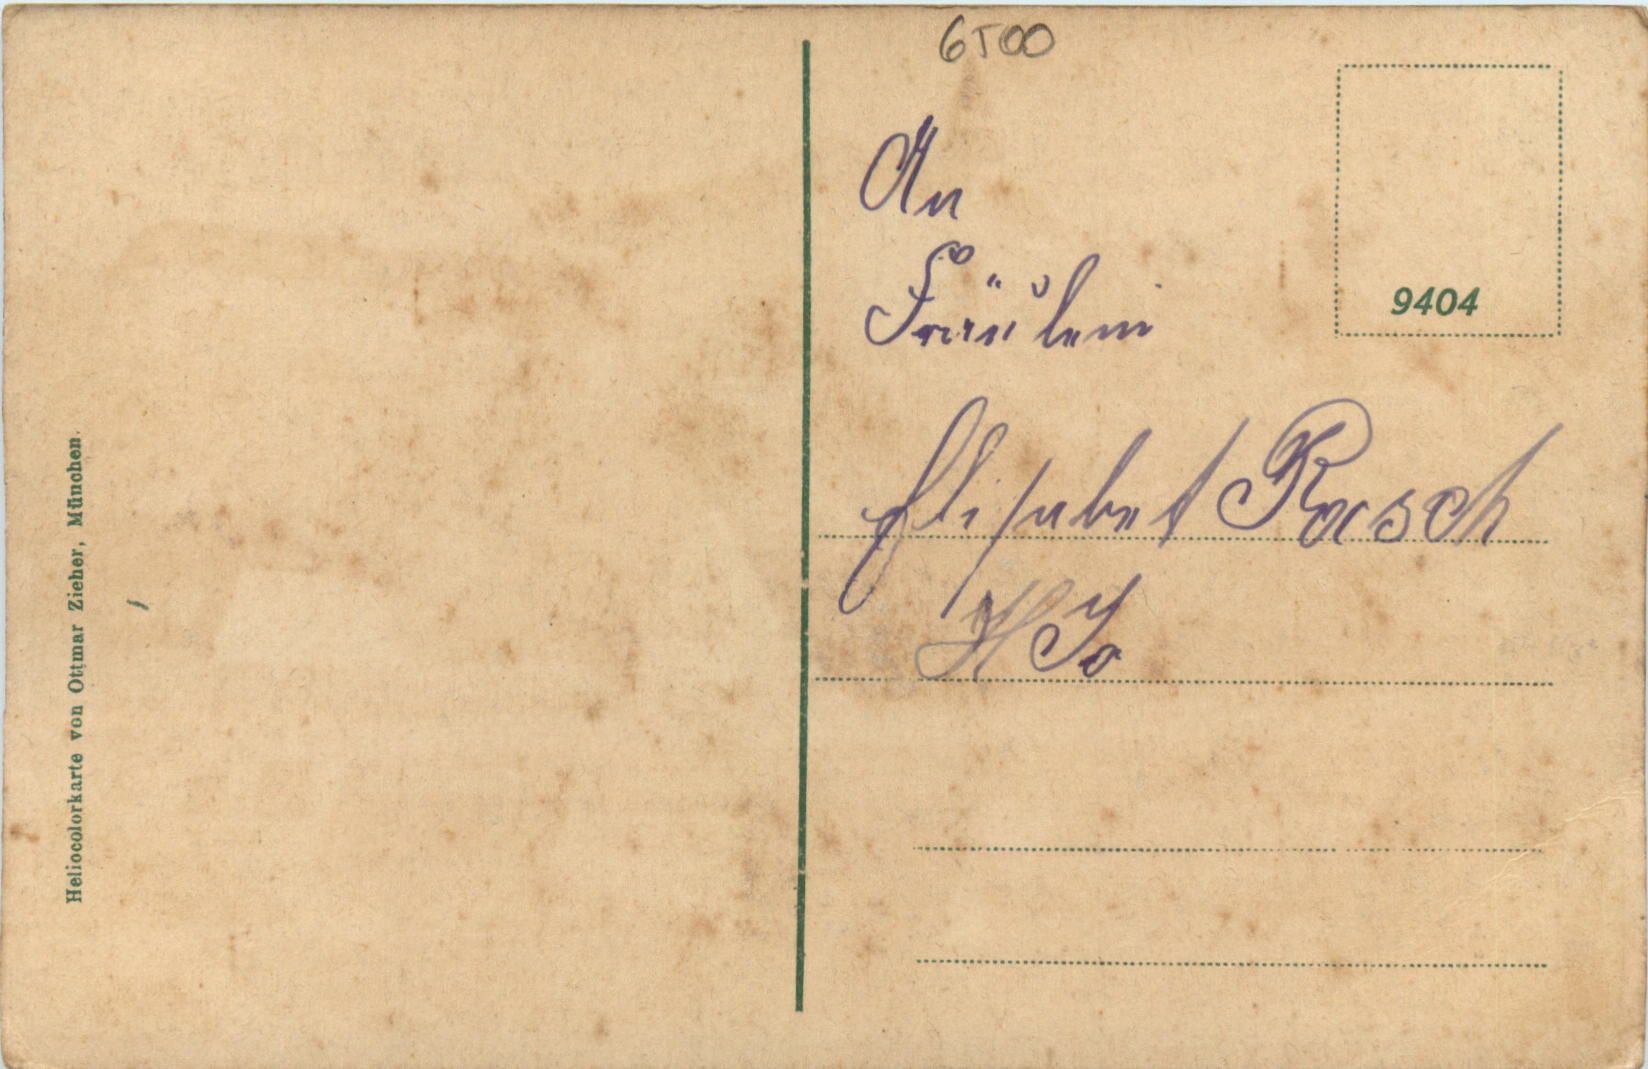 6500
An
Fräulein
Elisabet Rasch
9404
Heliocolorkarte von Ottmar Zieher, München.